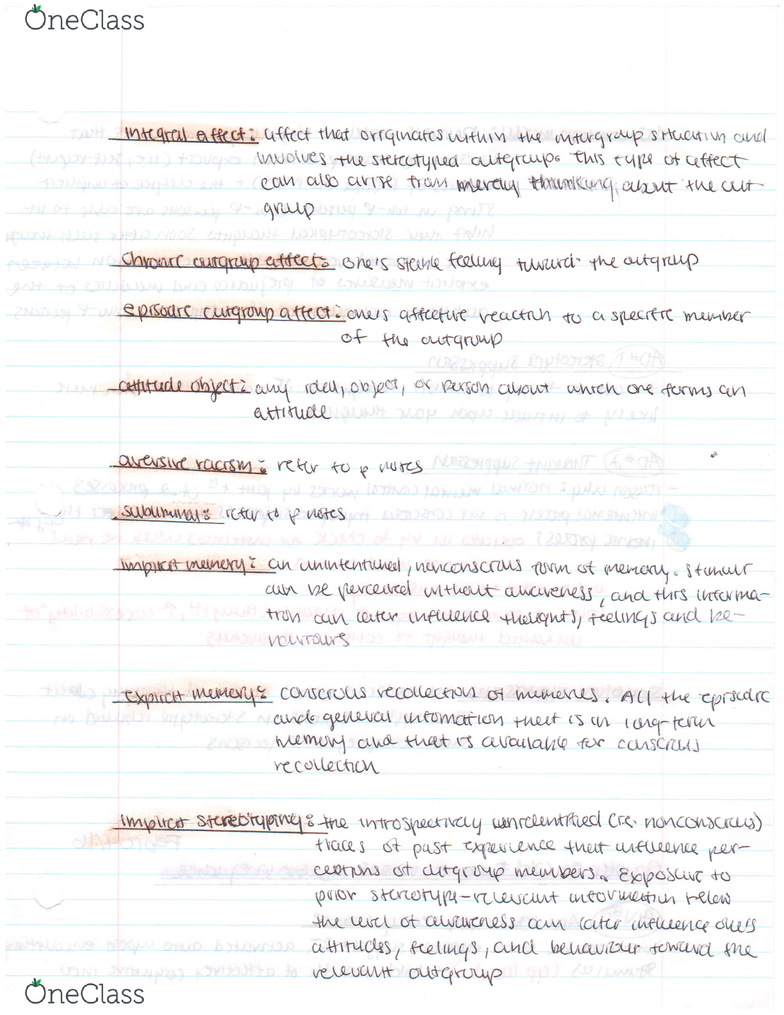 OneClass
integral affect: affect that originates within the intergroup situation and
involves the stereotyped outgroup. this type of affect
can also arise from merely thinking about the out-
group
Chronic outgroup affect: one's stable feeling toward the outgroup
episodic outgroup affect: one's affective reaction to a specific member
of the outgroup
attitude object: any idea, object, or person about which one forms an
attitude
aversive racism: refer to p notes
subliminal: refer to p notes
implicit memory: an unintentional, nonconscious form of memory. stimuli
can be perceived without awareness, and this informa-
tion can later influence thoughts, feelings and be-
haviours
explicit memory: conscious recollection of memories. All the episodic
and general information that is in long-term
memory and that is available for conscious
recollection
implicit stereotyping: the introspectively unidentified (ie. nonconscious)
traces of past experience that influence per-
ceptions of outgroup members. Exposure to
prior stereotype-relevant information below
the level of awareness can later influence one's
attitudes, feelings, and behaviour toward the
relevant outgroup
OneClass